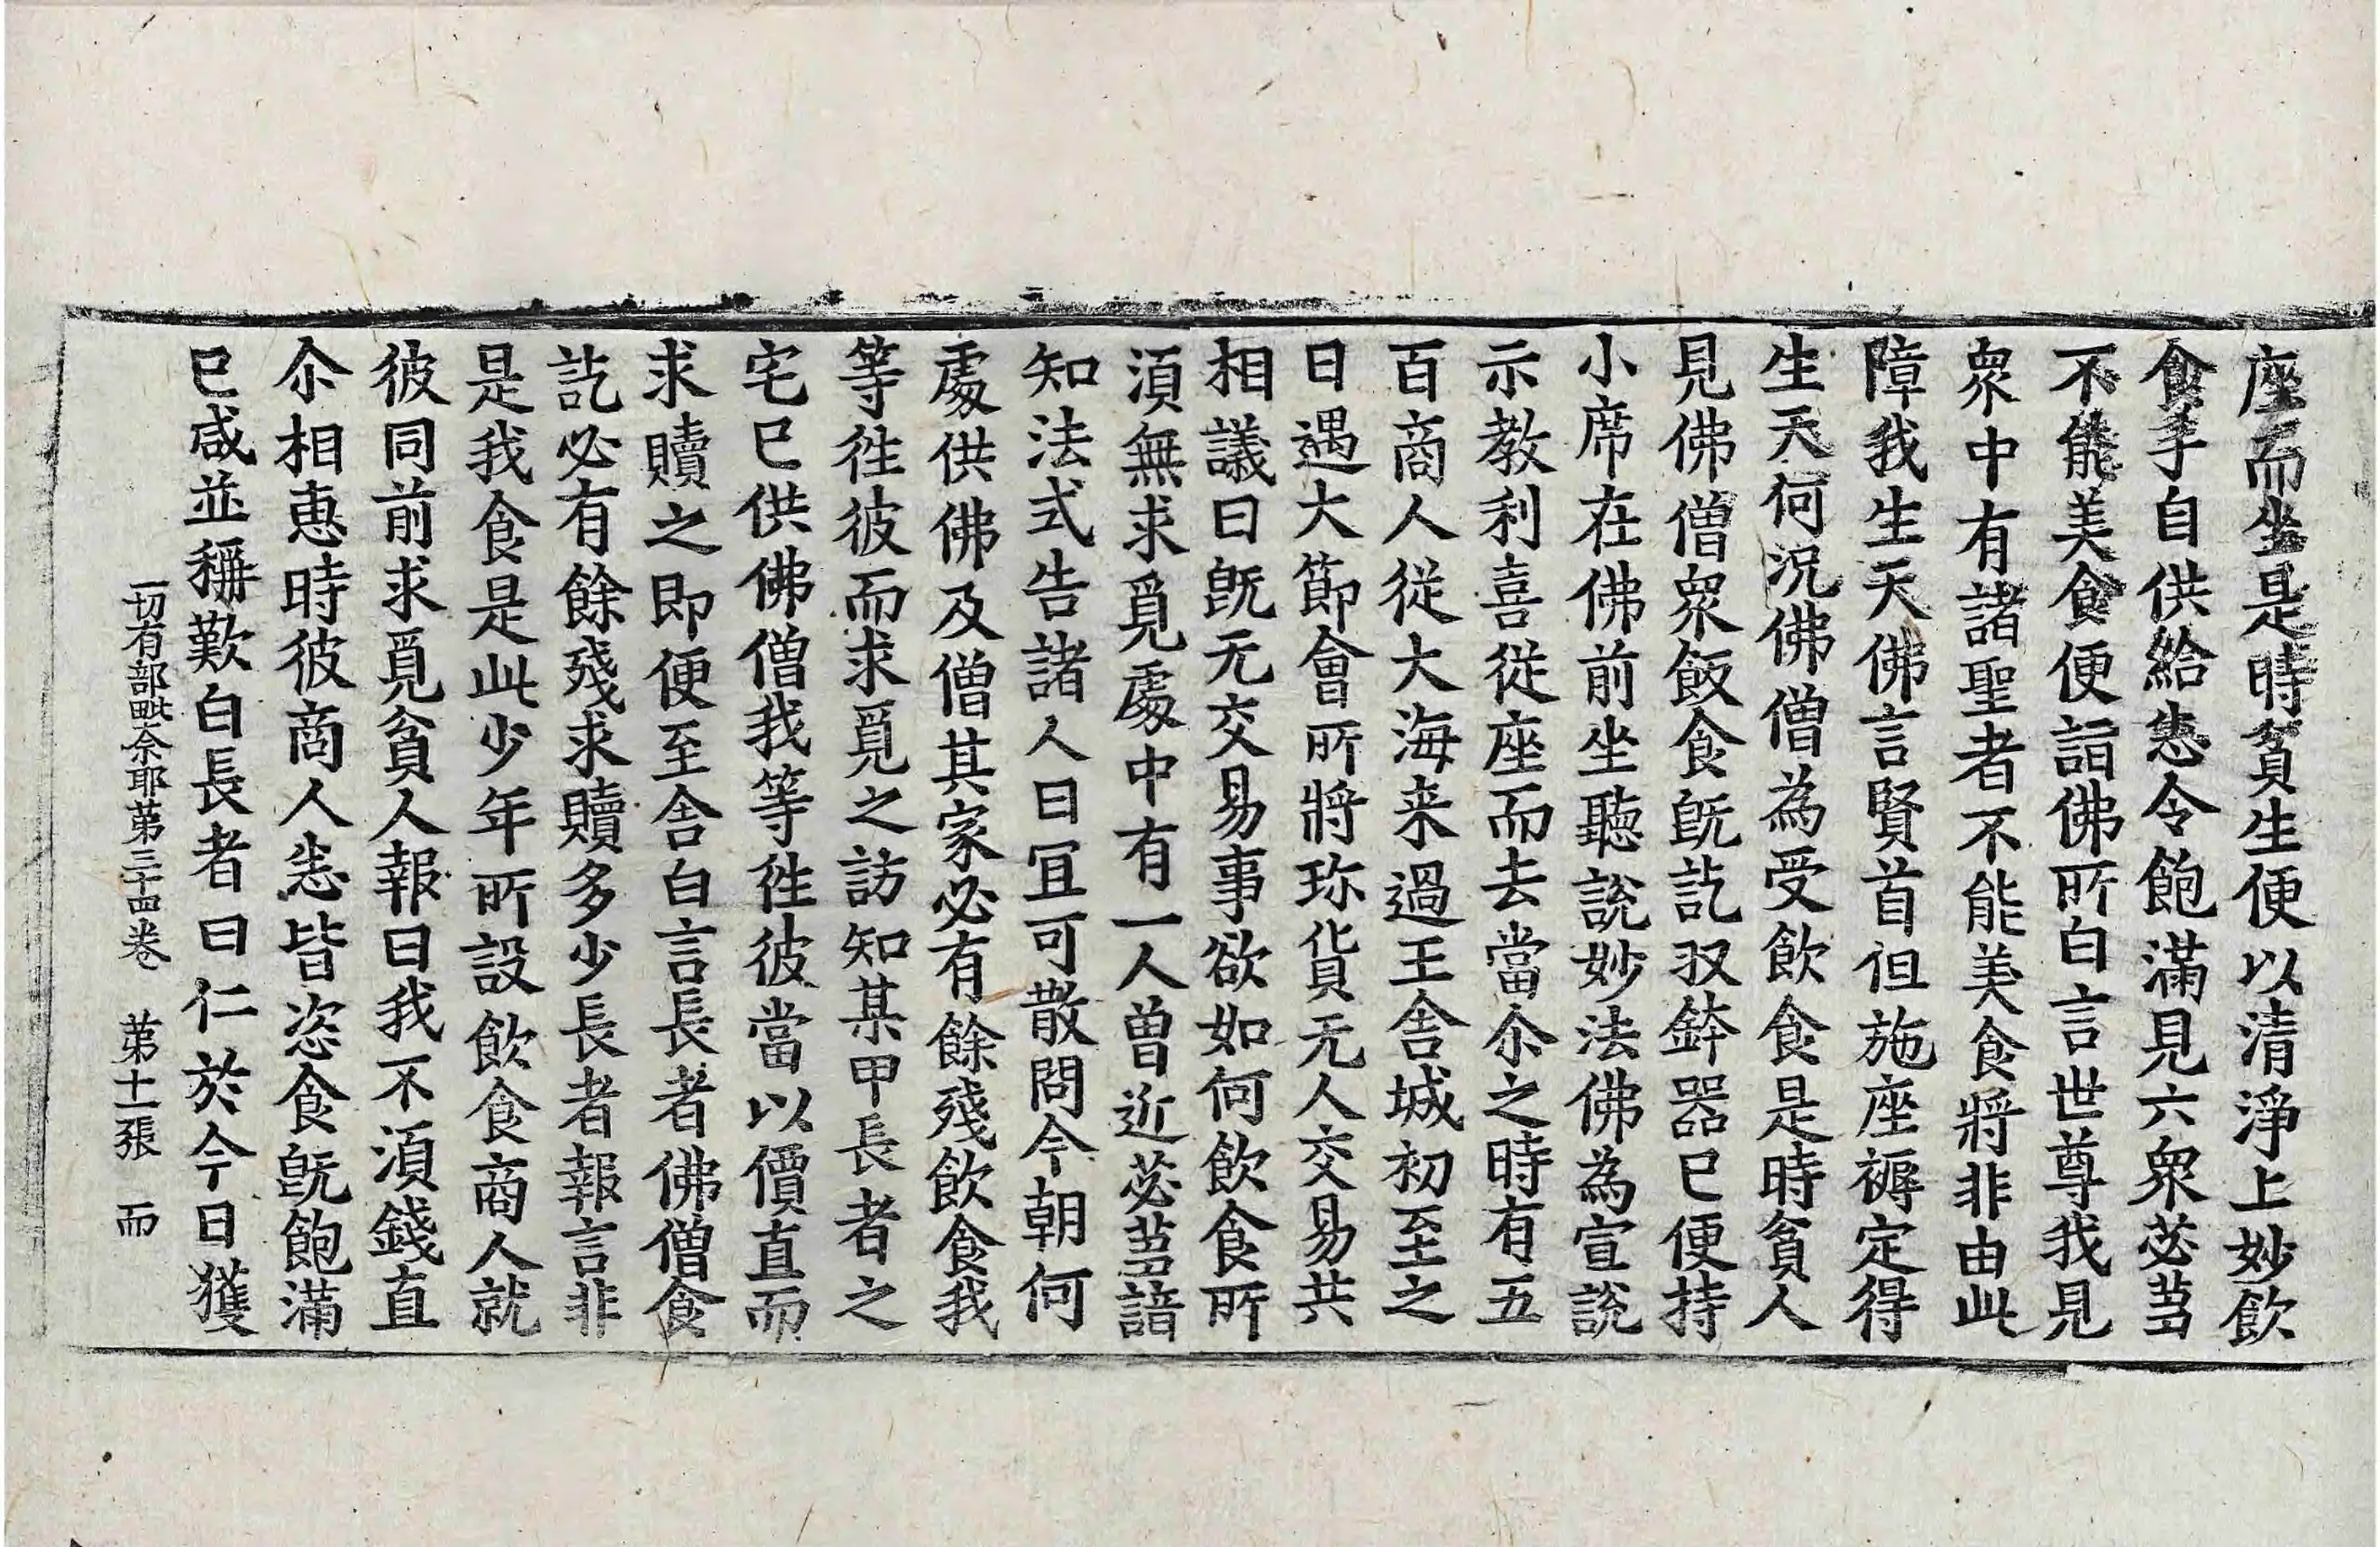 座而坐是時貧生便以清淨上妙飲
食手自供給悉令飽滿見六衆苾芻
不能美食便詣佛所白言世尊我見
衆中有諸聖者不能美食將非由此
障我生天佛言賢首但施座褥定得
生天何況佛僧為受飲食是時貧人
見佛僧衆飯食旣訖収鉢器已便持
小席在佛前坐聽說妙法佛為宣說
示教利喜從座而去當尒之時有五
百商人從大海来過王舍城初至之
日遇大節會所將珎貨无人交易共
相議曰旣无交易事欲如何飲食所
湏無求覓處中有一人曾近苾芻諳
知法式告諸人曰冝可散問今朝何
處供佛及僧其家必有餘殘飲食我
等徃彼而求覓之訪知某甲長者之
宅已供佛僧我等徃彼當以價直而
求贖之即便至舍白言長者佛僧食
訖必有餘殘求贖多少長者報言非
是我食是此少年所設飲食商人就
彼同前求覓貧人報曰我不湏錢直
尒相惠時彼商人悉皆恣食旣飽滿
已咸並稱歎白長者曰仁於今日獲
一切有部毗奈耶苐三十四卷　苐十一張　而